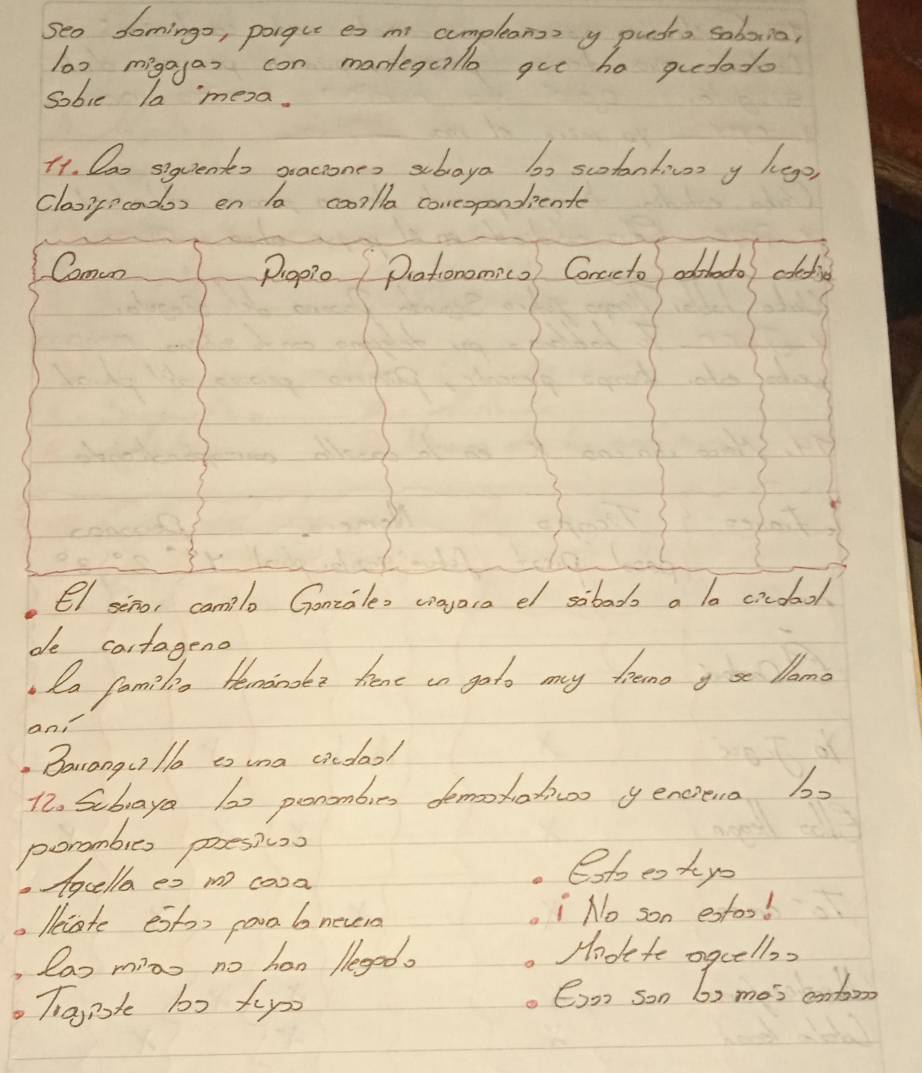 seo domingo, porque es mi cumpleaños y puedes saboria,
las migajas con mantequilla que ha quedado
sobre la mesa.
11. Las siguientes oraciones subraya los sustantivos y luego,
clasificados en la casilla correspondiente
Comun Propio Patronomico Concreto colectivo
• El señor camilo González viajara el sábado a la ciudad
de cartagena
• La familia Hernández tiene un gato muy tierno y se llama
aní
• Barranquilla es una ciudad
12. Subraya los pronombres demostrativos y encierra los
pronombres posesivos
• Aquella es mi casa
• Esto es tuyo
• lleiate estos para la nevera
• ¡No son estos!
• Las mias no han llegado
• Midete aquellos
• Trajiste los tuyos
• Esos son los más